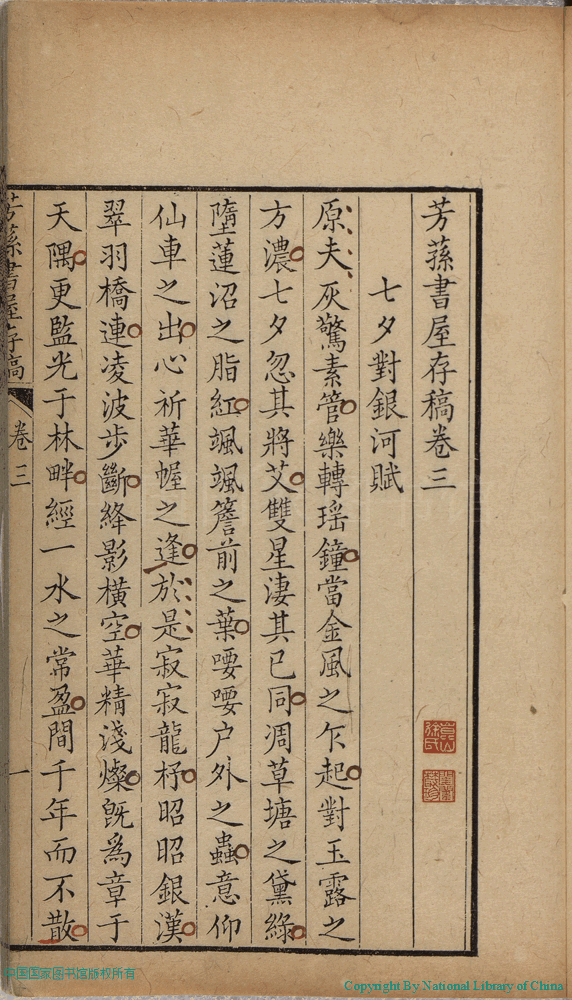 芳蓀書屋存稿卷三
七夕對銀河賦
原夫灰驚素管樂轉瑶鐘當金風之乍起對玉露之
方濃七夕忽其將艾雙星淒其已同凋草塘之黛綠
墮蓮沼之脂紅颯颯簷前之葉喓喓户外之蟲意仰
仙車之出心祈華幄之逢於是寂寂龍杼昭昭銀漢
翠羽橋連凌波步斷絳影橫空華精淺燦旣為章于
天隅更監光于林畔經一水之常盈間千年而不散
芳蓀書屋存稿
卷三
一
中国国家图书馆版权所有
Copyright By National Library of China